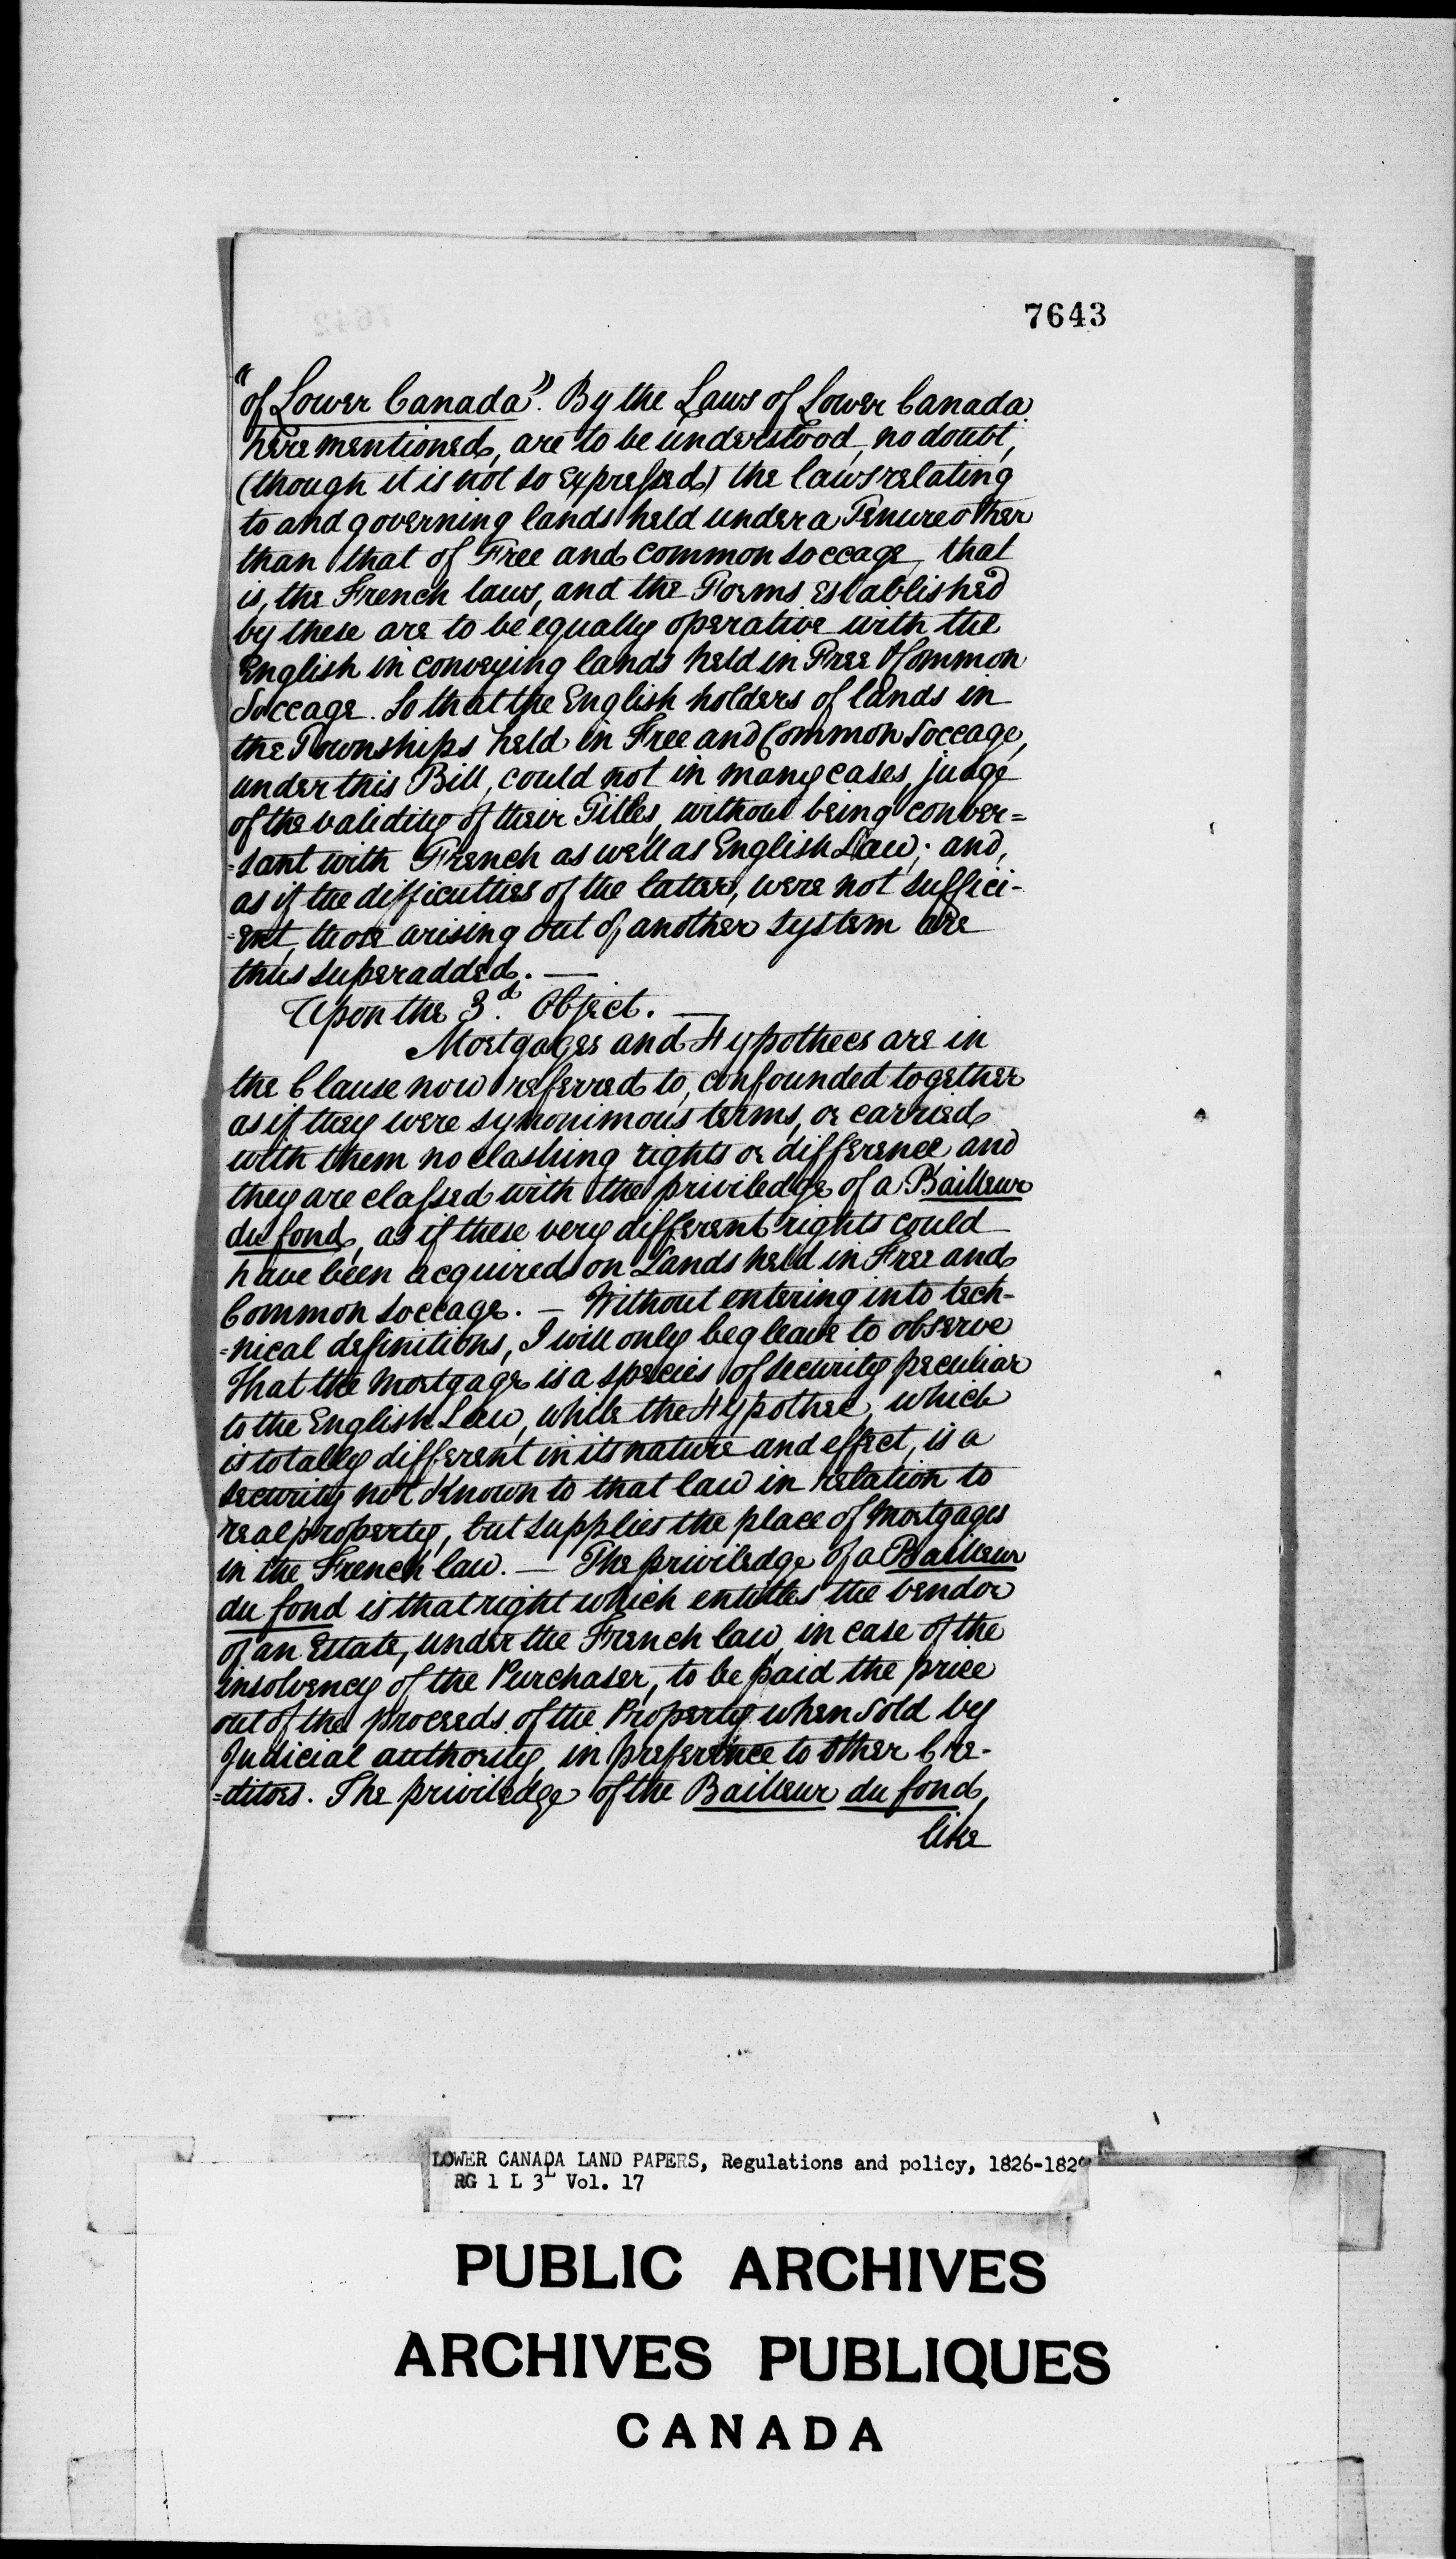 7643
"of Lower Canada". By the Laws of Lower Canada
here mentioned, are to be understood, no doubt,
(though it is not so expressed) the laws relating
to and governing lands held under a Tenure other
than that of Free and common soccage, that
is, the French laws, and the Forms established
by these are to be equally operative with the
English in conveying lands held in Free & Common
Soccage. So that the English holders of lands in
the Townships held in Free and Common Soccage,
under this Bill, could not in many cases, judge
of the validity of their Titles, without being conver=
=sant with French as well as English Law; and,
as if the difficulties of the latter, were not suffici-
=ent, those arising out of another system are
thus superadded. —
Upon the 3.d Object. —
Mortgages and Hypothecs are in
the Clause now referred to, confounded together
as if they were synonimous terms, or carried
with them no clashing rights or difference and
they are classed with the priviledge of a Bailleur
du fond, as if these very different rights could
have been acquired on Lands held in Free and
Common Soccage. — Without entering into tech-
=nical definitions, I will only beg leave to observe
That the Mortgage is a species of security peculiar
to the English Law, while the Hypothec, which
is totally different in its nature and effect, is a
security not known to that law in relation to
real property, but supplies the place of Mortgages
in the French law. — The priviledge of a Bailleur
du fond is that right which entitles the vendor
of an Estate, under the French law, in case of the
insolvency of the Purchaser, to be paid the price
out of the proceeds of the Property when sold by
Judicial authority, in preference to other Cre-
=ditors. The priviledge of the Bailleur du fond,
like
LOWER CANADA LAND PAPERS, Regulations and policy, 1826-1829
RG 1 L 3L Vol. 17
PUBLIC ARCHIVES
ARCHIVES PUBLIQUES
CANADA